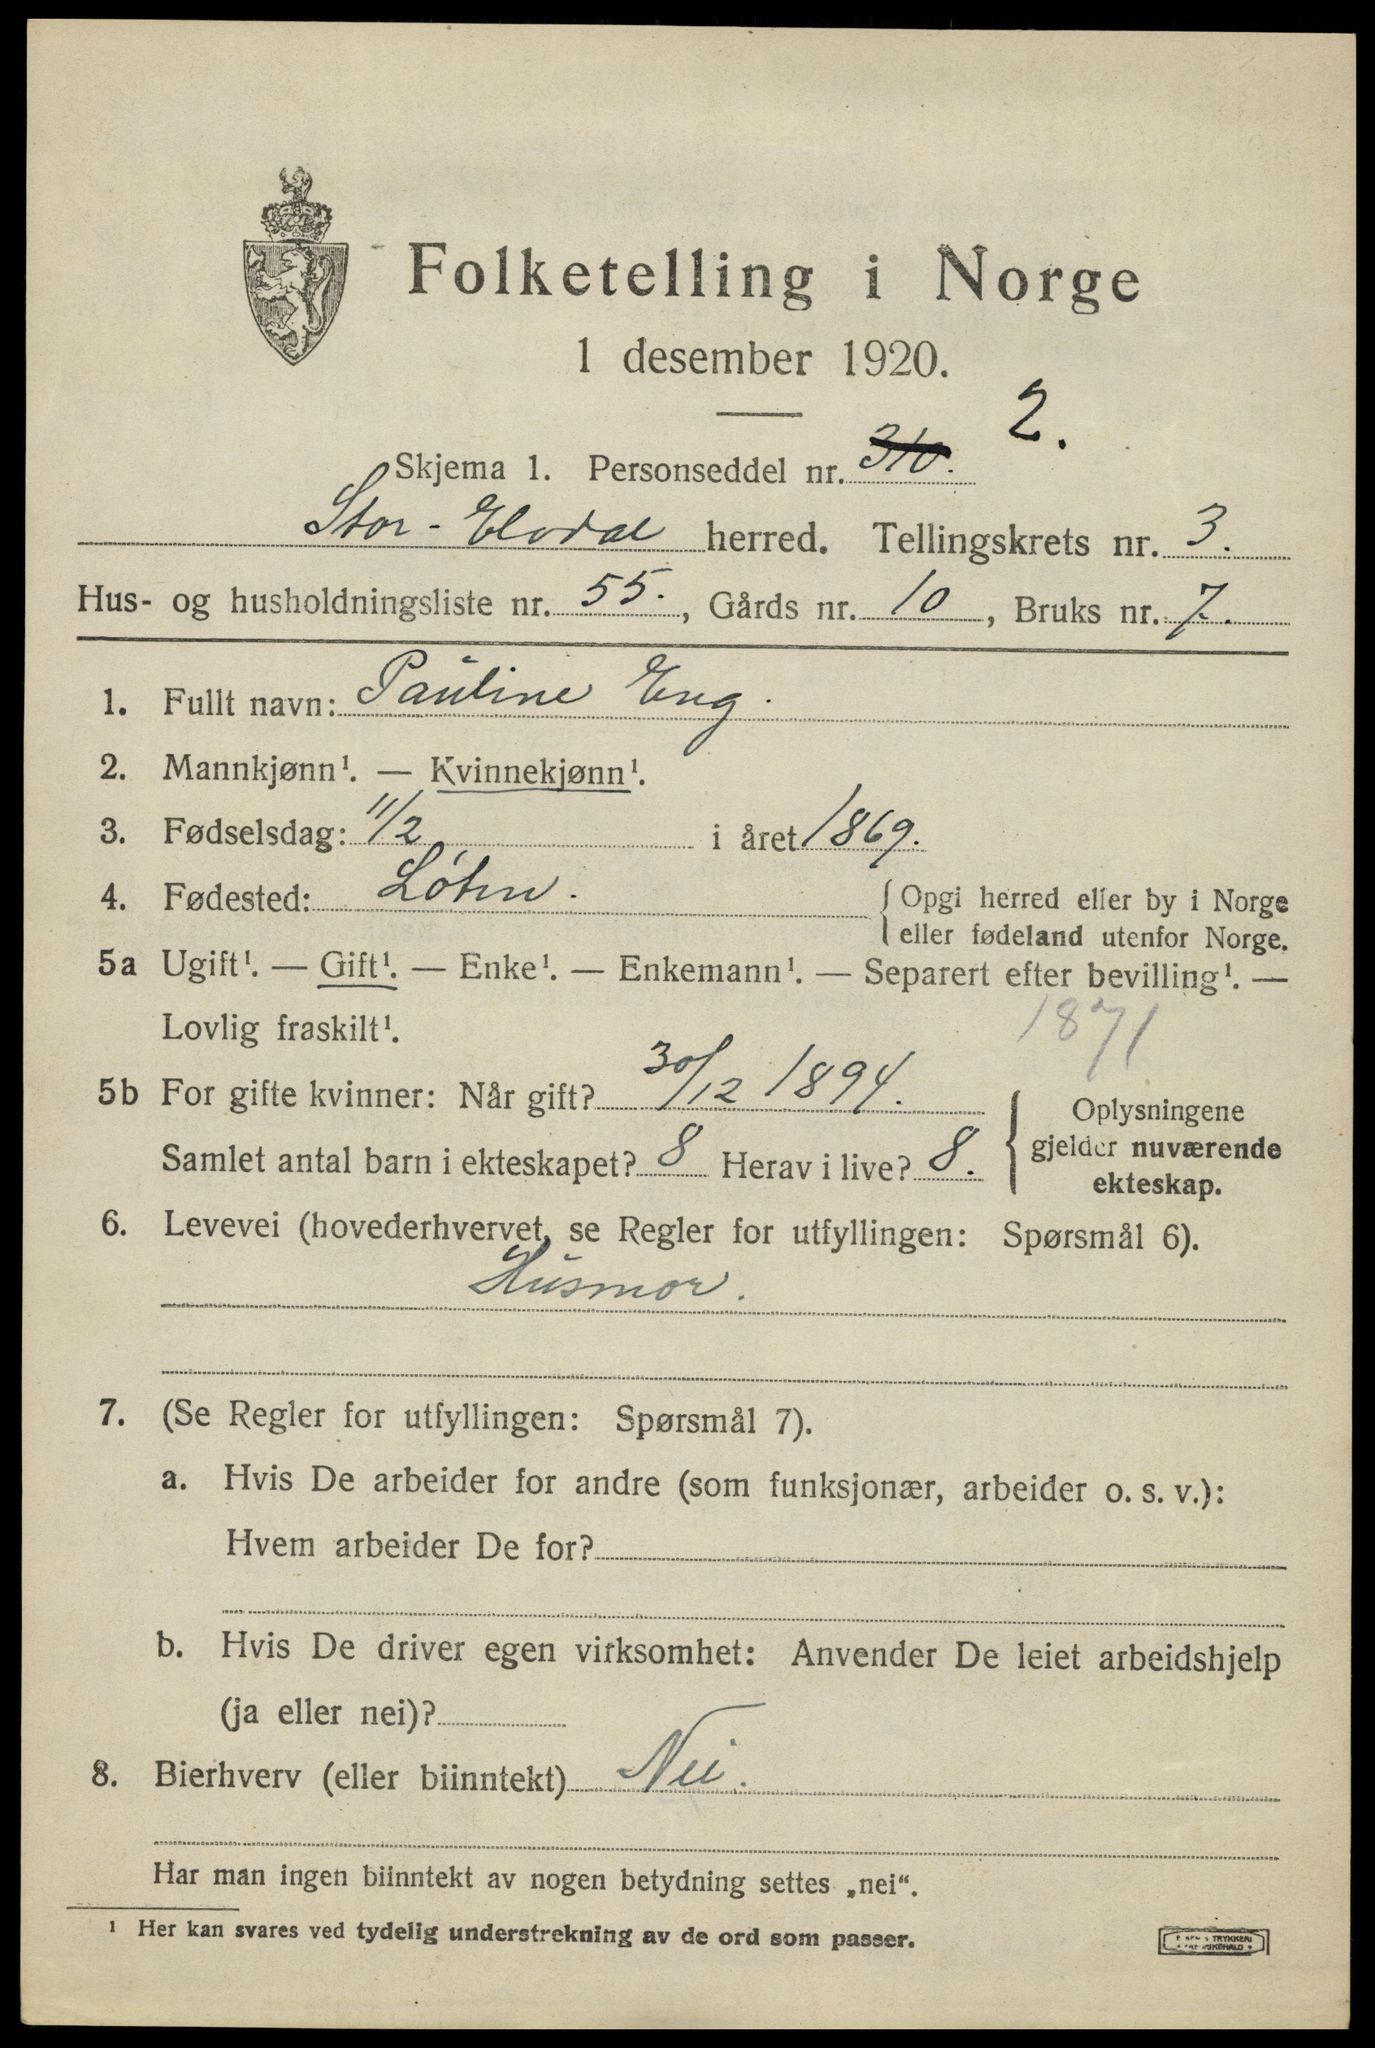 Folketelling i Norge
1 desember 1920.
2.
Skjema 1. Personseddel nr. 310.
Stor-Elvdal herred. Tellingskrets nr. 3.
Hus- og husholdningsliste nr. 55., Gårds nr. 10, Bruks nr. 7.
1. Fullt navn: Pauline Eng.
2. Mannkjønn¹. — Kvinnekjønn¹.
3. Fødselsdag: 11/2 i året 1869.
4. Fødested: Løten. { Opgi herred eller by i Norge
eller fødeland utenfor Norge.
5a Ugift¹. — Gift¹. — Enke¹. — Enkemann¹. — Separert efter bevilling¹. —
Lovlig fraskilt¹. 1871
5b For gifte kvinner: Når gift? 30/12 1894. { Oplysningene
gjelder nuværende
ekteskap.
Samlet antal barn i ekteskapet? 8 Herav i live? 8.
6. Levevei (hovederhvervet, se Regler for utfyllingen: Spørsmål 6).
Husmor.
7. (Se Regler for utfyllingen: Spørsmål 7).
a. Hvis De arbeider for andre (som funksjonær, arbeider o. s. v.):
Hvem arbeider De for?
b. Hvis De driver egen virksomhet: Anvender De leiet arbeidshjelp
(ja eller nei)?
8. Bierhverv (eller biinntekt) Nei.
Har man ingen biinntekt av nogen betydning settes „nei“.
¹ Her kan svares ved tydelig understrekning av de ord som passer.